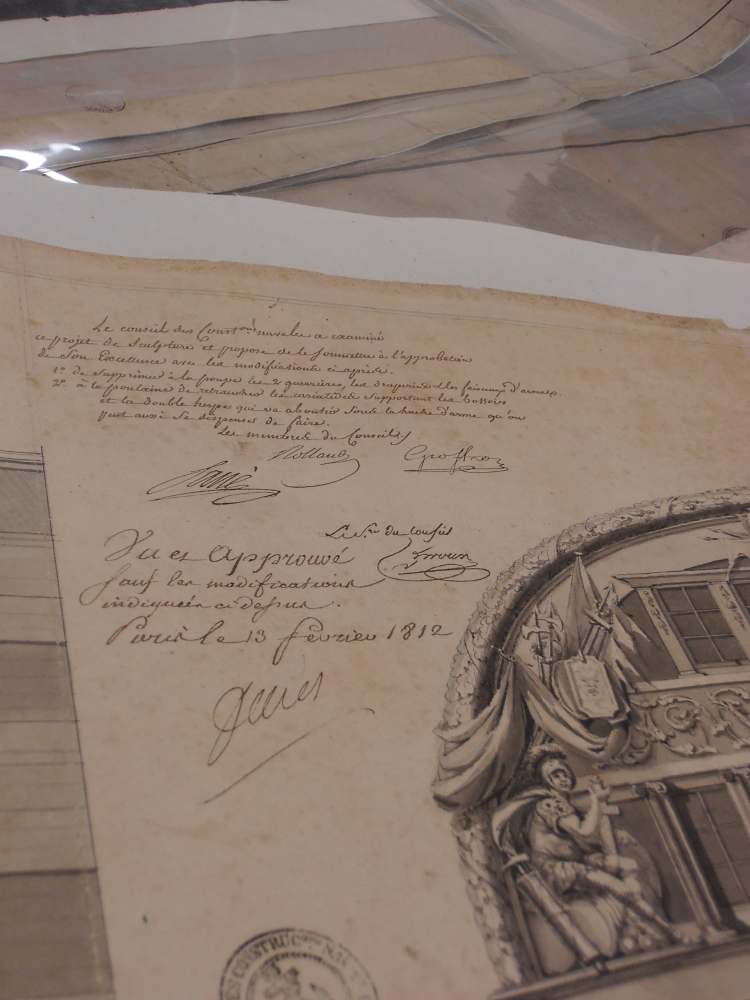 Le conseil des Const.ons navales a examiné
ce projet de Sculpture et propose de le soumettre à l'approbation
de Son Excellence avec les modifications ci après.
1.o de Supprimer à la poupe les 2 guerrières, les draperies et les faisceaux d'armes.
2.o à la poulaine de retrancher les cariatides supportant les bossoirs
et la double herpe qui va aboutir sous la hache d'arme qu'on
peut aussi se dispenser de faire.
Les membres du Conseil
Rolland
Sané
Le S.re du Conseil
Vu et Approuvé
sauf les modifications
indiquées ci dessus.
Paris le 13 février 1812
Decrès
CONSTRUC